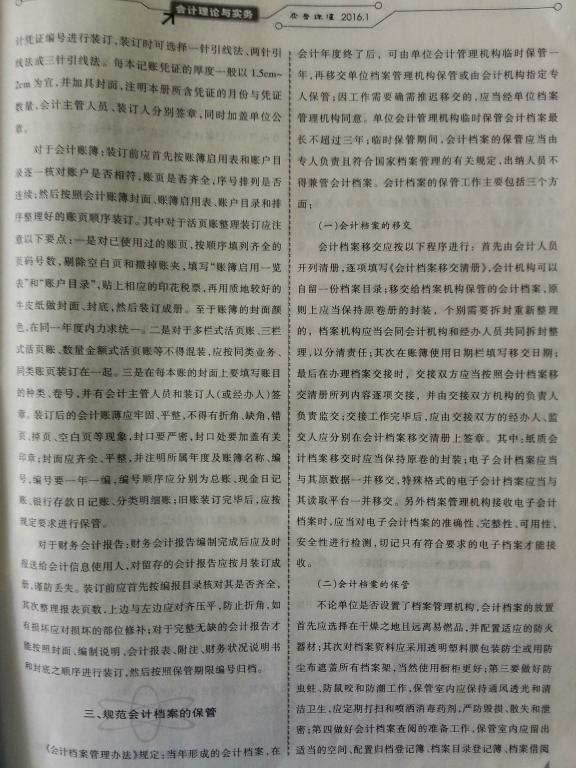 会计理论与实务
2016.1
计凭证编号进行装订,装订时可选择一针引线法、两针引
线法或三针引线法。每本记账凭证的厚度一般以 1.5cm~
2cm 为宜,并加具封面,注明本册所含凭证的月份与凭证
数量,会计主管人员、装订人分别签章,同时加盖单位公
章。
对于会计账簿:装订前应首先按账簿启用表和账户目
录逐一核对账户是否相符,账页是否齐全,序号排列是否
连续;然后按照会计账簿封面、账簿启用表、账户目录和排
序整理好的账页顺序装订。其中对于活页账整理装订应注
意以下要点:一是对已使用过的账页,按顺序填列齐全的
页码号数,剔除空白页和撤掉账夹,填写“账簿启用一览
表”和“账户目录”,贴上相应的印花税票,再用质地较好的
牛皮纸做封面、封底,然后装订成册。至于账簿的封面颜
色,在同一年度内力求统一。二是对于多栏式活页账、三栏
式活页账、数量金额式活页账等不得混装,应按同类业务、
同类账页装订在一起。三是在每本账的封面上要填写账目
的种类、卷号,并有会计主管人员和装订人(或经办人)签
章。装订后的会计账薄应牢固、平整,不得有折角、缺角,错
页、掉页、空白页等现象,封口要严密,封口处要加盖有关
印章;封面应齐全、平整,并注明所属年度及账簿名称、编
号,编号要一年一编,编号顺序应分别为总账、现金日记
账、银行存款日记账、分类明细账;旧账装订完毕后,应按
规定要求进行保管。
对于财务会计报告:财务会计报告编制完成后应及时
报送给会计信息使用人,对留存的会计报告应按月装订成
册,谨防丢失。装订前应首先按编报目录核对其是否齐全,
其次整理报表页数,上边与左边应对齐压平,防止折角,如
有损坏应对损坏的部位修补;对于完整无缺的会计报告才
能按照封面、编制说明、会计报表、附注、财务状况说明书
和封底之顺序进行装订,然后按照保管期限编号归档。
三、规范会计档案的保管
《会计档案管理办法》规定:当年形成的会计档案,在
会计年度终了后,可由单位会计管理机构临时保管一
年,再移交单位档案管理机构保管或由会计机构指定专
人保管;因工作需要确需推迟移交的,应当经单位档案
管理机构同意。单位会计管理机构临时保管会计档案最
长不超过三年;临时保管期间,会计档案的保管应当由
专人负责且符合国家档案管理的有关规定,出纳人员不
得兼管会计档案。会计档案的保管工作主要包括三个方
面:
(一)会计档案的移交
会计档案移交应按以下程序进行:首先由会计人员
开列清册,逐项填写《会计档案移交清册》,会计机构可以
自留一份档案目录;移交给档案机构保管的会计档案,原
则上应当保持原卷册的封装,个别需要拆封重新整理
的,档案机构应当会同会计机构和经办人员共同拆封整
理,以分清责任;其次在账簿使用日期栏填写移交日期;
最后在办理档案交接时,交接双方应当按照会计档案移
交清册所列内容逐项交接,并由交接双方机构的负责人
负责监交;交接工作完毕后,应由交接双方的经办人、监
交人应分别在会计档案移交清册上签章。其中:纸质会
计档案移交时应当保持原卷的封装;电子会计档案应当
与其原数据一并移交,特殊格式的电子会计档案应当与
其读取平台一并移交。另外档案管理机构接收电子会计
档案时,应当对电子会计档案的准确性、完整性、可用性、
安全性进行检测,切记只有符合要求的电子档案才能接
收。
(二)会计档案的保管
不论单位是否设置了档案管理机构,会计档案的放置
首先应选择在干燥之地且远离易燃品,并配置适应的防火
器材;其次对档案资料应采用透明塑料膜包装防尘或用防
尘布遮盖所有档案架,当然使用橱柜更好;第三要做好防
虫蛀、防鼠咬和防潮工作,保管室内应保持通风透光和清
洁卫生,应定期打扫和喷洒消毒药剂,严防毁损、散失和泄
密;第四做好会计档案查阅的准备工作,保管室内应留出
适当的空间、配置归档登记簿、档案目录登记簿、档案借阅